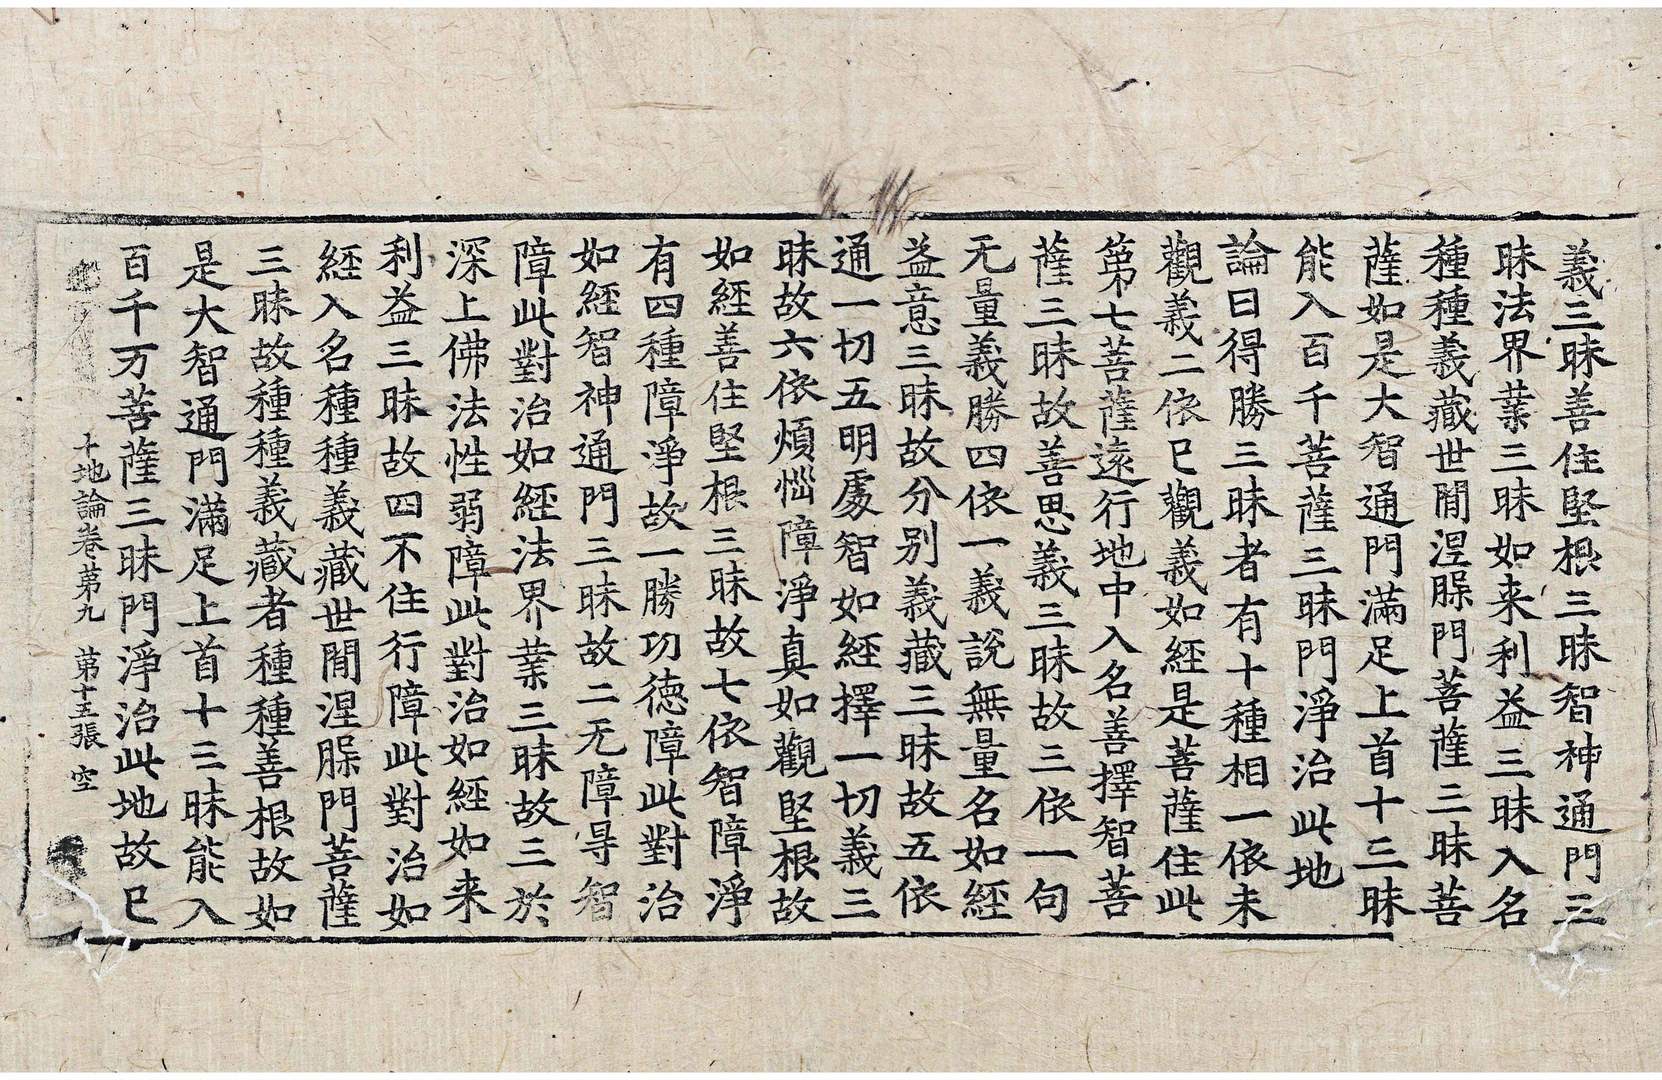 義三昧善住堅根三昧智神通門三
昧法界業三昧如来利益三昧入名
種種義藏世間涅槃門菩薩三昧菩
薩如是大智通門滿足上首十三昧
能入百千菩薩三昧門淨治此地
論曰得勝三昧者有十種相一依未
觀義二依已觀義如經是菩薩住此
第七菩薩遠行地中入名善擇智菩
薩三昧故善思義三昧故三依一句
无量義勝四依一義說無量名如經
益意三昧故分别義藏三昧故五依
通一切五明處智如經擇一切義三
昧故六依煩惱障淨真如觀堅根故
如經善住堅根三昧故七依智障淨
有四種障淨故一勝功德障此對治
如經智神通門三昧故二无障㝵智
障此對治如經法界業三昧故三於
深上佛法性弱障此對治如經如来
利益三昧故四不住行障此對治如
經入名種種義藏世間涅槃門菩薩
三昧故種種義藏者種種善根故如
是大智通門滿足上首十三昧能入
百千万菩薩三昧門淨治此地故已
十地論卷第九 第十五張 空